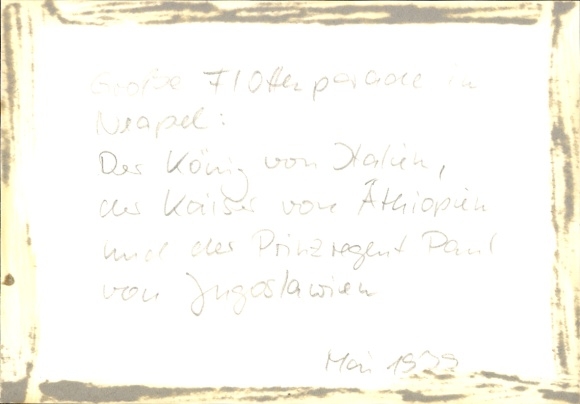 Große Flottenparade in
Neapel:
Der König von Italien,
der Kaiser von Äthiopien
und der Prinzregent Paul
von Jugoslawien
Mai 1939